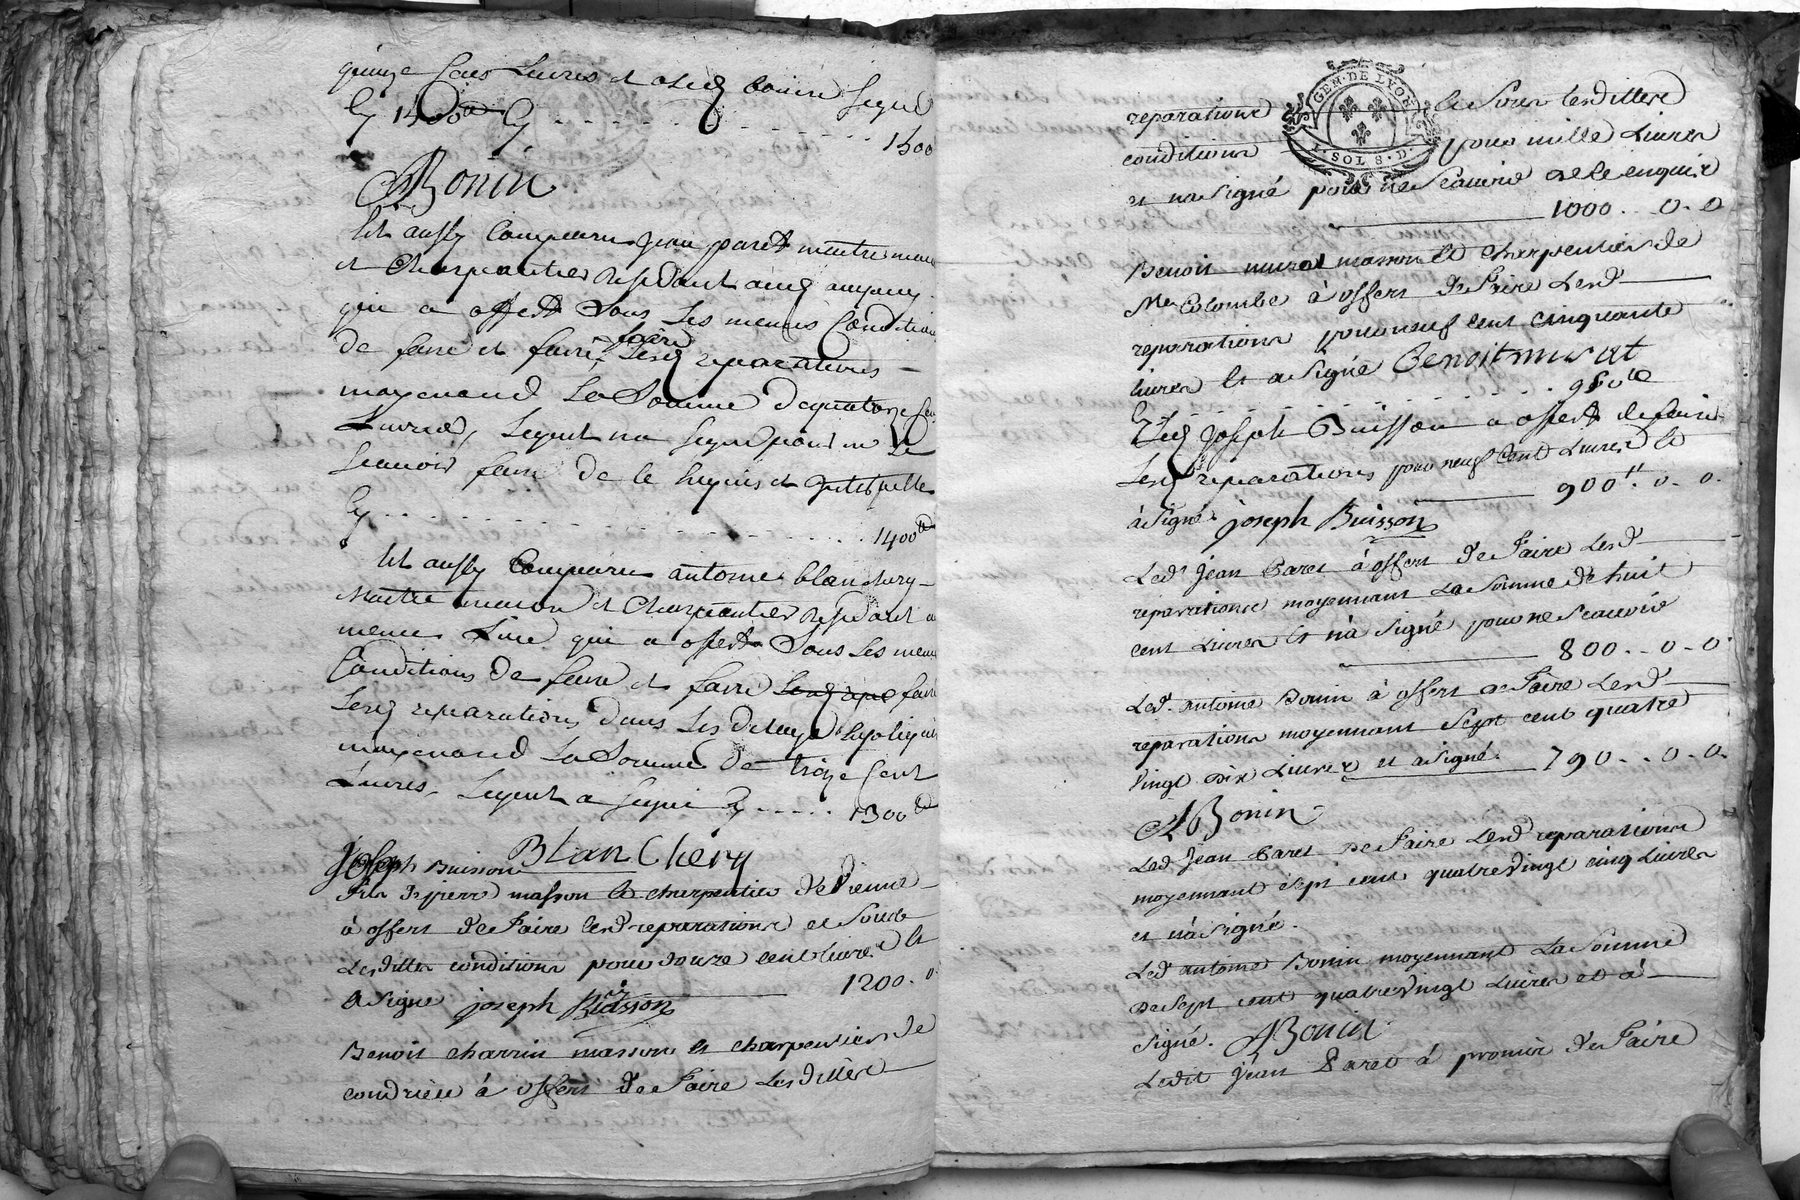 quinze Cens Livres et a led bonin signé
Cy 1500 Cy 1500
ABonin
Est aussy Comparu jean paret maitre
et Charpantier residant aud ampuis
qui a offert Sous les memes Condition
de faire et faire faire lesd reparations
moyenand La Somme de quatorze
Livres, lequel na signé pour ne le
scavoir faire de le requis et interpellé
Cy 1400
Est aussy Comparu antoine blanchery
Maitre masson et Charpantier residant
meme Lieu qui a offert Sous les meme
Conditions de faire et faire faire
lesd reparations dans les delays
moyenand La Somme de treize Cent
Livres, lequel a signé Cy 1300
BlanChery
joseph Buisson
fils de pierre masson et charpentier de Vienne
à offert de Faire lesd reparations et Sous
Lesdittes conditions pour douze cent livres et
a signé joseph Buisson 1200. 0
Benoit charrin masson et charpentier de
condrieu à offert de Faire Lesdittes
GEN. DE LYON
SOLS. D.
reparations Sous lesdittes
conditions pour mille Livres
et na signé pour ne scavoir de le enquis
1000. . 0. 0
Benoit murat masson et charpentier de
Ste Colombe à offert de Faire Lesd
reparations pour neuf cent cinquante
livres et a signé Benoit murat
Cy 950
Led joseph Buisson a offert de faire
lesd reparations pour neuf Cent Livres et
à signé. joseph Buisson 900. 0. 0.
Led. Jean Paret à offert de Faire Lesd
reparations moyennant La Somme de huit
cent Livres et n'a signé pour ne scavoir
800. . 0. 0
Led. antoine Bonin à offert de Faire Lesd
reparations moyennant sept cent quatre
vingt dix Livres et a signé. 790. . 0. 0.
ABonin
Led Jean Paret de Faire Lesd reparations
moyennant sept cent quatrevingt cinq Livres
et n'a signé.
Led antoine Bonin moyennant La Somme
de sept cent quatrevingt Livres et à
signé. ABonin
Ledit Jean Paret à promis de Faire